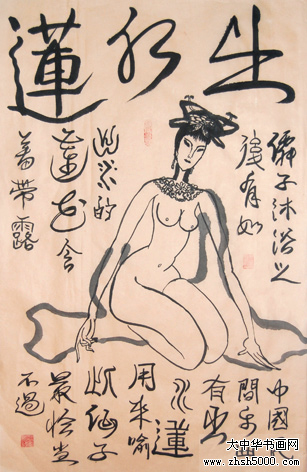 出水蓮
子沐浴之
後有如
的
蓮花含
著帶露
中國
間
有出
水蓮
用来喻
此仙子
最恰当
不過
大中华书画网
www.zhsh5000.com